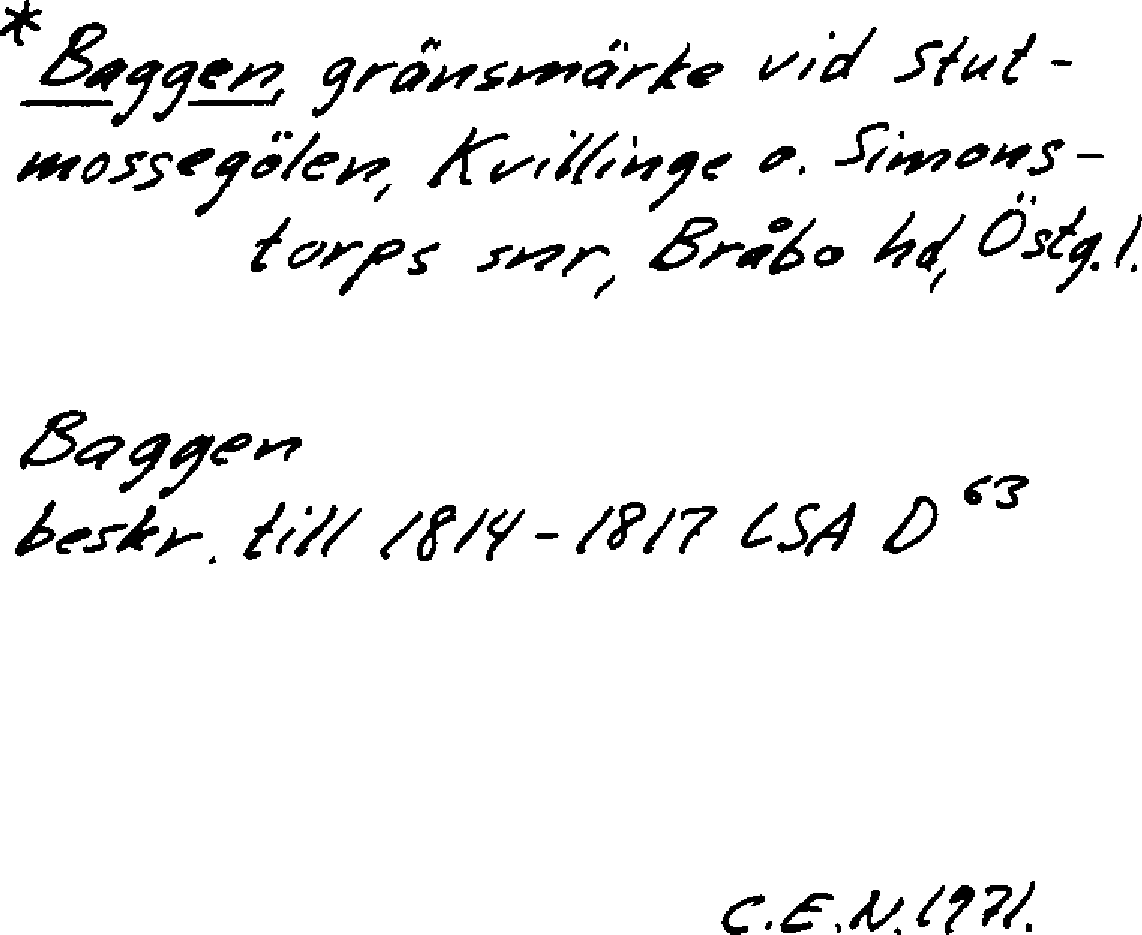 * Baggen, gränsmärke vid Stut-
mossegölen, Kvillinge o. Simons-
torps snr, Bråbo hd, Östg.l.
Baggen
beskr. till 1814-1817 LSA D 63
C.E.N. 1971.